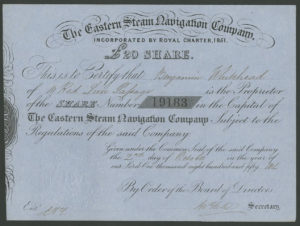 The Eastern Steam Navigation Company.
INCORPORATED BY ROYAL CHARTER, 1851.
£20 SHARE.
This is to Certify that Benjamin Whitehead
of Red Lion Passage is the Proprietor
of the SHARE Number 19183 in the Capital of
The Eastern Steam Navigation Company. Subject to the
Regulations of the said Company.
Given under the Common Seal of the said Company
the day of October in the year of
our Lord One thousand eight hundred and fifty
By Order of the Board of Directors.
Secretary.